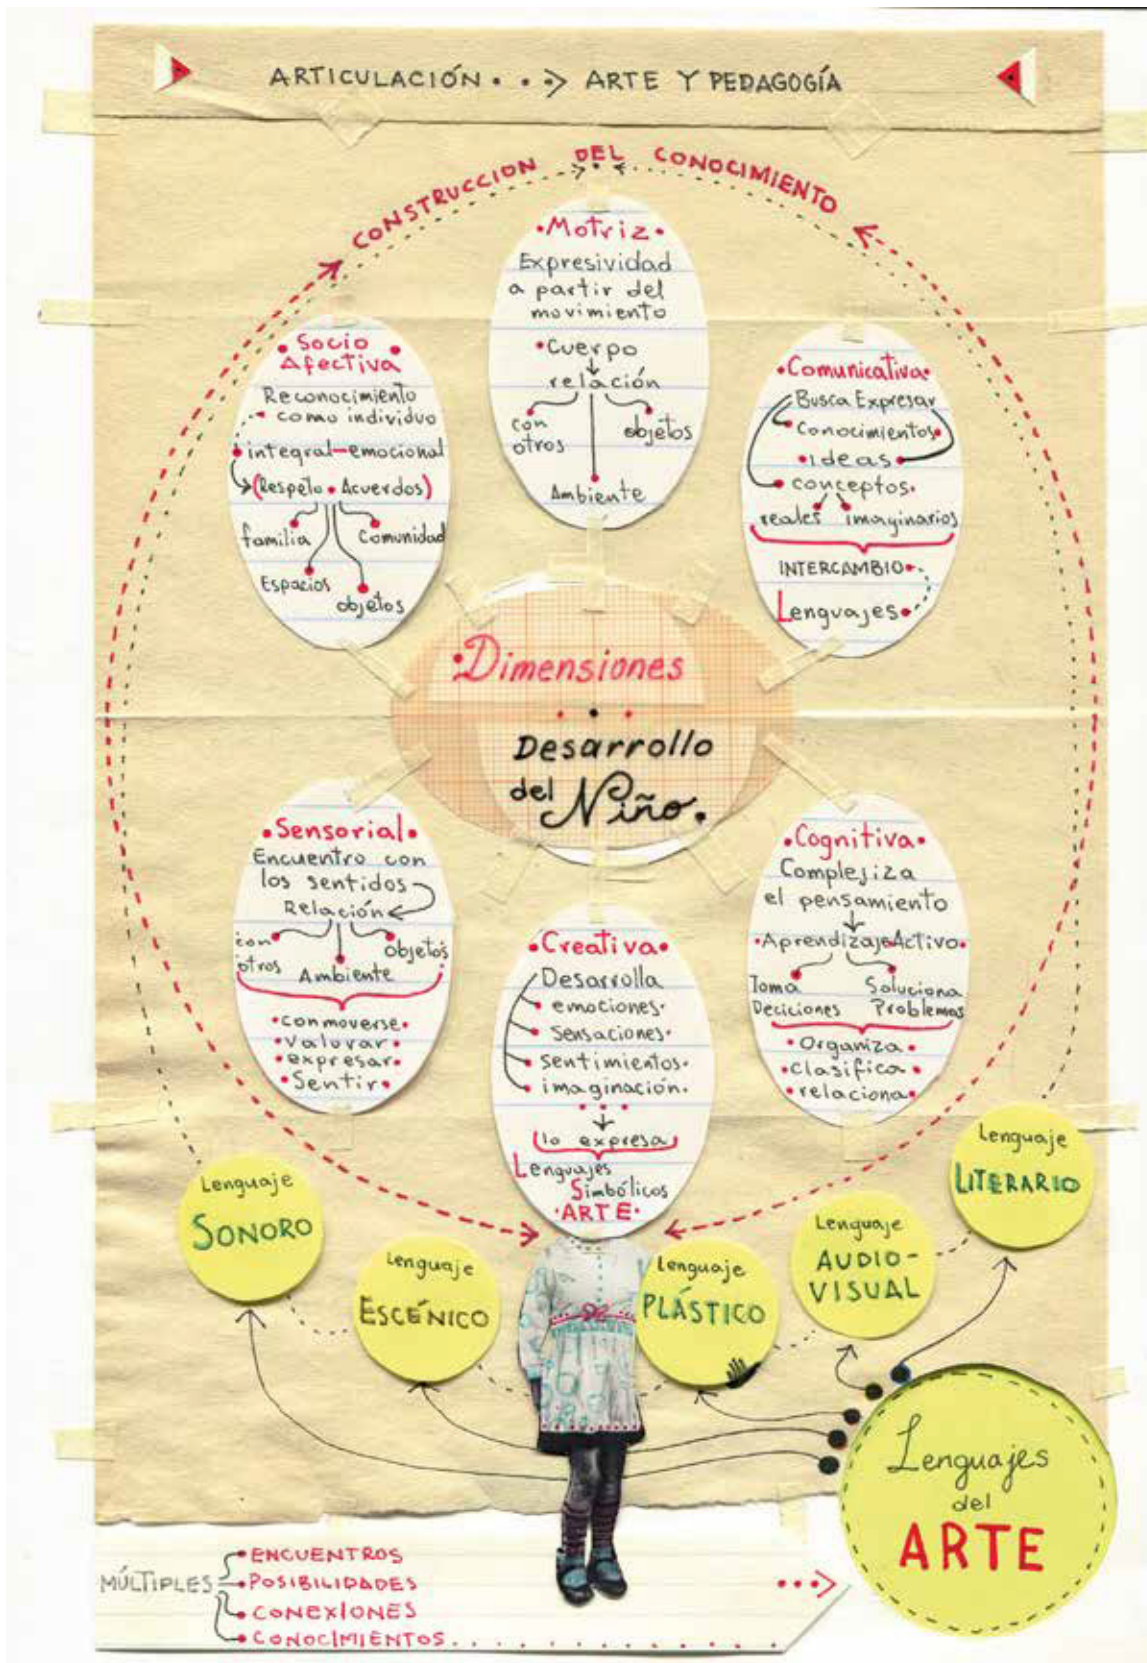 ARTICULACIÓN · · > ARTE Y PEDAGOGÍA
CONSTRUCCION DEL CONOCIMIENTO
•Motriz•
Expresividad
a partir del
movimiento
•Cuerpo
relación
con
otros
objetos
Ambiente
•Socio
Afectiva•
Reconocimiento
como individuo
integral-emocional
(Respeto • Acuerdos)
familia
Comunidad
Espacios
objetos
•Comunicativa•
Busca Expresar
Conocimientos
•ideas
conceptos.
reales imaginarios
INTERCAMBIO
Lenguajes
•Dimensiones
Desarrollo
del Niño.
•Sensorial•
Encuentro con
los sentidos
Relación
con
otros
Ambiente
objetos
•conmoverse•
•valorar•
•expresar•
•Sentir•
•Creativa•
Desarrolla
emociones•
sensaciones•
sentimientos•
imaginación•
(lo expresa)
Lenguajes
Simbólicos
•ARTE•
•Cognitiva•
Complejiza
el pensamiento
•Aprendizaje•Activo•
Toma
Deciciones
Soluciona
Problemas
•Organiza•
•clasifica•
•relaciona•
Lenguaje
SONORO
Lenguaje
ESCÉNICO
Lenguaje
PLÁSTICO
Lenguaje
AUDIO-
VISUAL
Lenguaje
LITERARIO
Lenguajes
del
ARTE
MÚLTIPLES
ENCUENTROS
POSIBILIDADES
CONEXIONES
CONOCIMIENTOS